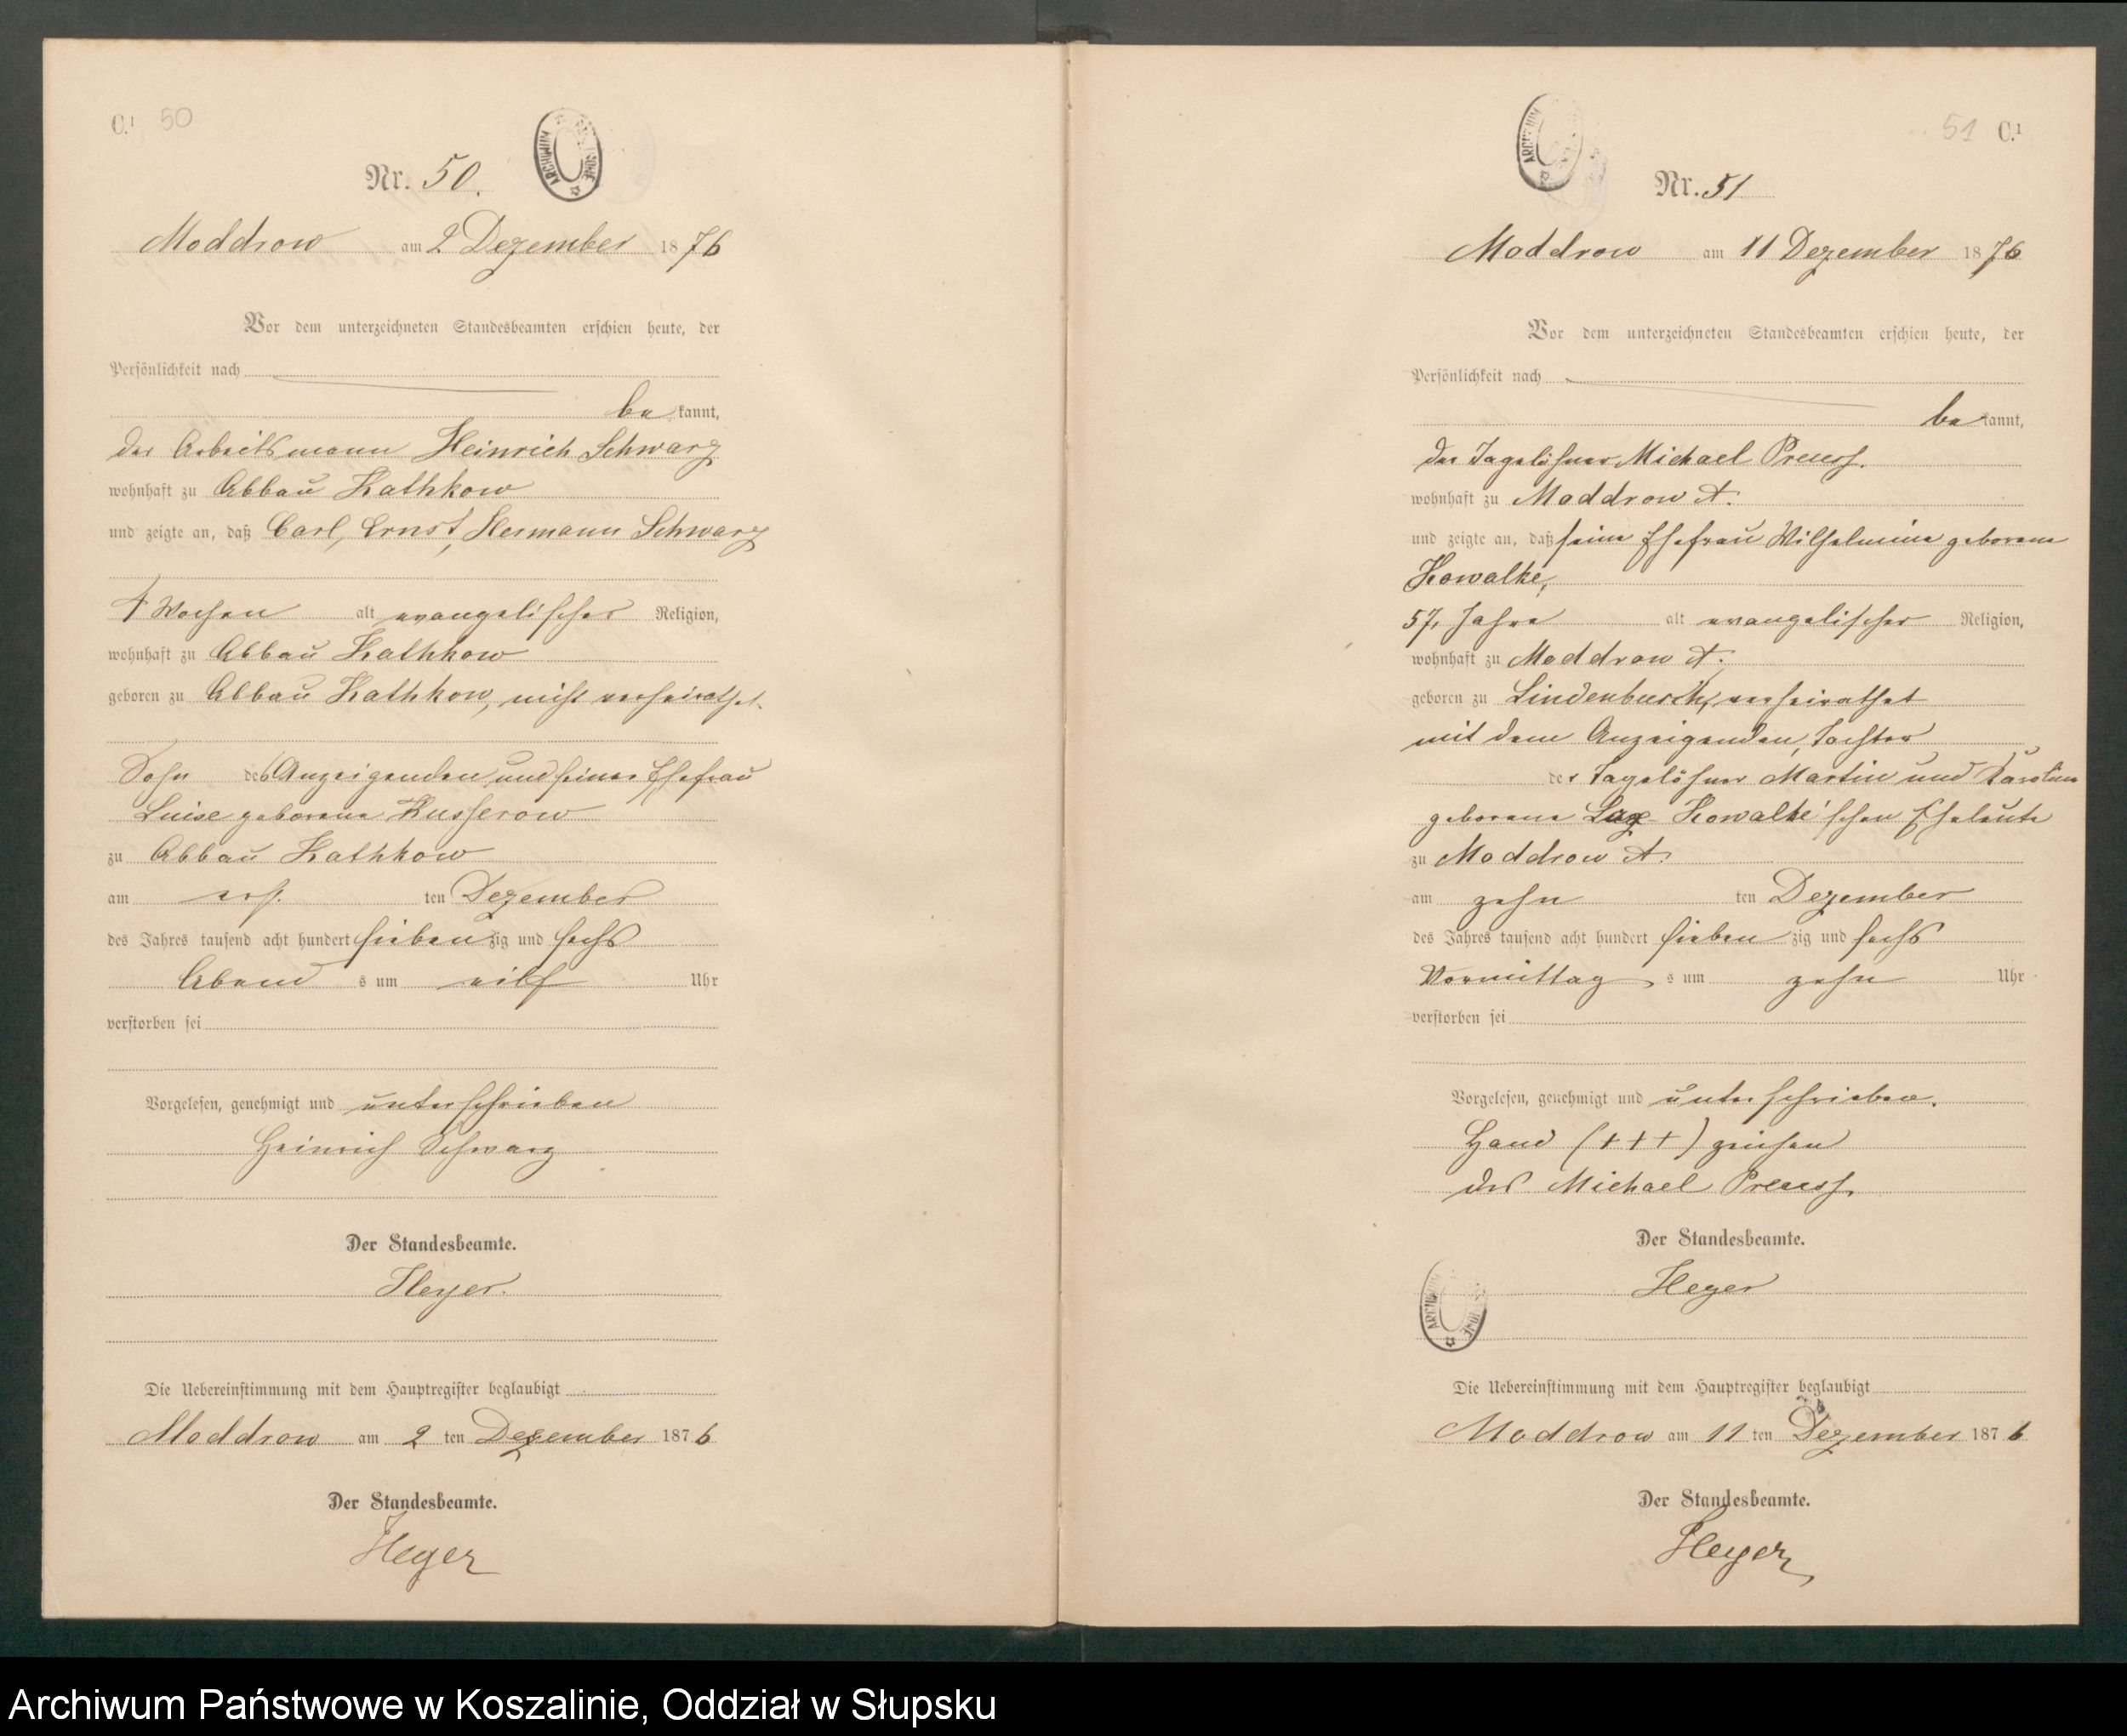 C.1 50
Nr. 50.
Moddrow am 2 Dezember 1876
Vor dem unterzeichneten Standesbeamten erschien heute, der
Persönlichkeit nach
be kannt,
der Arbeitsmann Heinrich Schwarz
wohnhaft zu Abbau Kathkow
und zeigte an, daß Carl, Ernst, Hermann Schwarz
4 Wochen alt evangelischer Religion,
wohnhaft zu Abbau Kathkow
geboren zu Abbau Kathkow, nicht verheirathet
Sohn des Anzeigenden und seiner Ehefrau
Luise geborene Kusserow
zu Abbau Kathkow
am ers ten Dezember
des Jahres tausend acht hundert sieben zig und sechs
Abend s um eilf Uhr
verstorben sei
Vorgelesen, genehmigt und unterschrieben
Heinrich Schwarz
Der Standesbeamte.
Heyer.
Die Uebereinstimmung mit dem Hauptregister beglaubigt
Moddrow am 2 ten Dezember 1876
Der Standesbeamte.
Heyer
51 C.1
Nr. 51
Moddrow am 11 Dezember 1876
Vor dem unterzeichneten Standesbeamten erschien heute, der
Persönlichkeit nach
be kannt,
der Tagelöhner Michael Preuss.
wohnhaft zu Moddrow A.
und zeigte an, daß seine Ehefrau Wilhelmine geborene
Kowalke,
57, Jahre alt evangelischer Religion,
wohnhaft zu Moddrow A.
geboren zu Lindenbusch, verheirathet
mit dem Anzeigenden, Tochter
der Tagelöhner Martin und Karoline
geborene Kowalke'schen Eheleute
zu Moddrow A.
am zehn ten Dezember
des Jahres tausend acht hundert sieben zig und sechs
Vormittag s um zehn Uhr
verstorben sei
Vorgelesen, genehmigt und unterschrieben.
Hand (+++) zeichen
des Michael Preuss.
Der Standesbeamte.
Heyer
ARCHIWUM
Die Uebereinstimmung mit dem Hauptregister beglaubigt
Moddrow am 11 ten Dezember 1876
Der Standesbeamte.
Heyer
Archiwum Państwowe w Koszalinie, Oddział w Słupsku